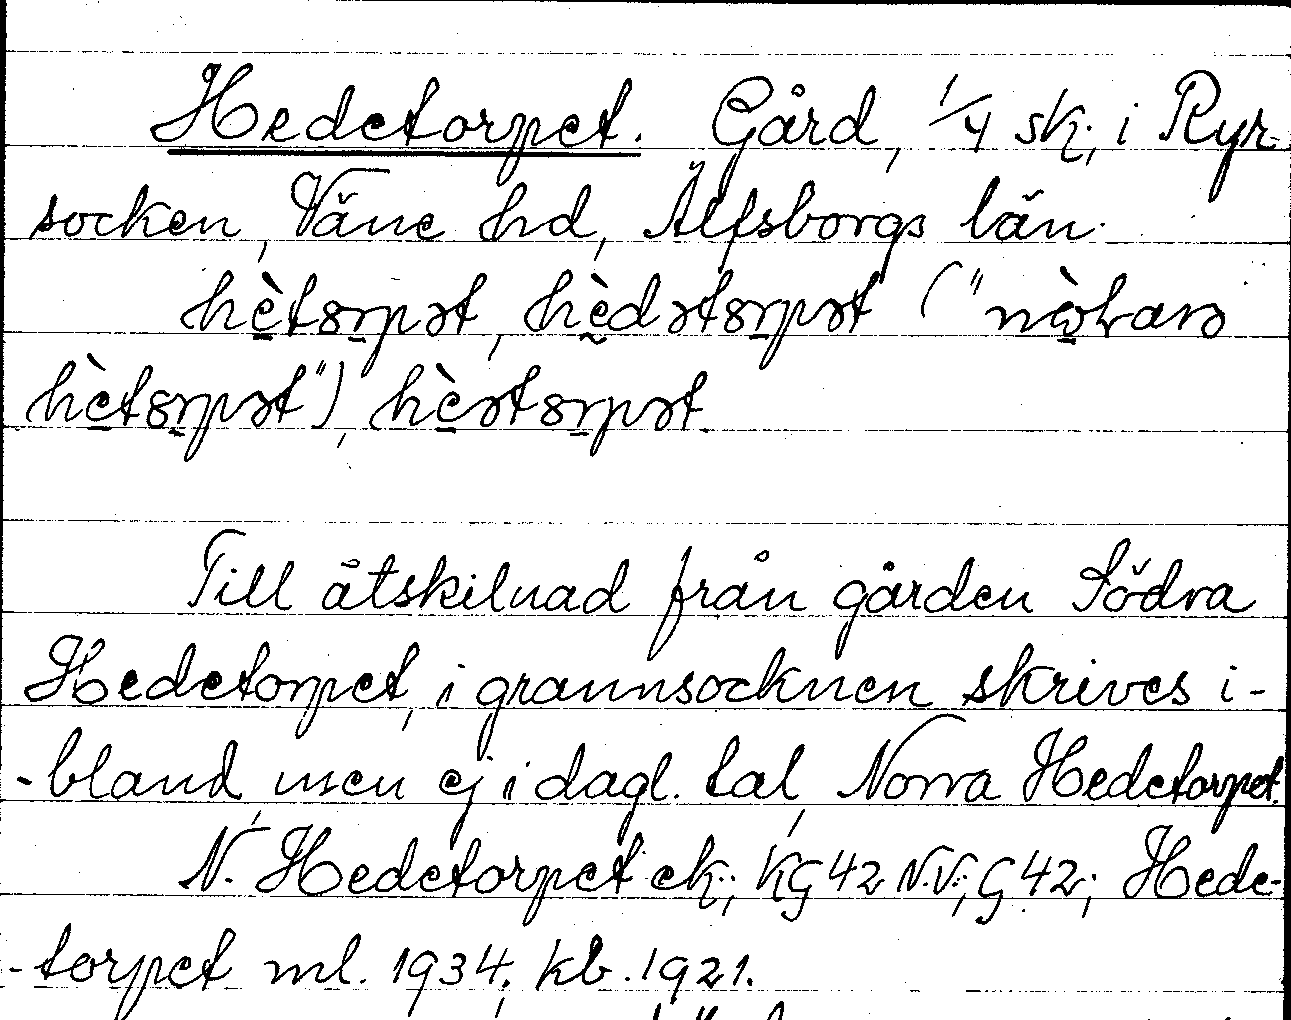 Hedetorpet. Gård, 1/4 sk., i Ryr-
socken, Väne hd, Älfsborgs län.
Till åtskilnad från gården Södra
Hedetorpet, i grannsocknen skrives i-
-bland, men ej i dagl. tal, Norra Hedetorpet.
N. Hedetorpet ek.; KG 42 N.V.; G 42; Hede-
-torpet ml. 1934; kb. 1921.